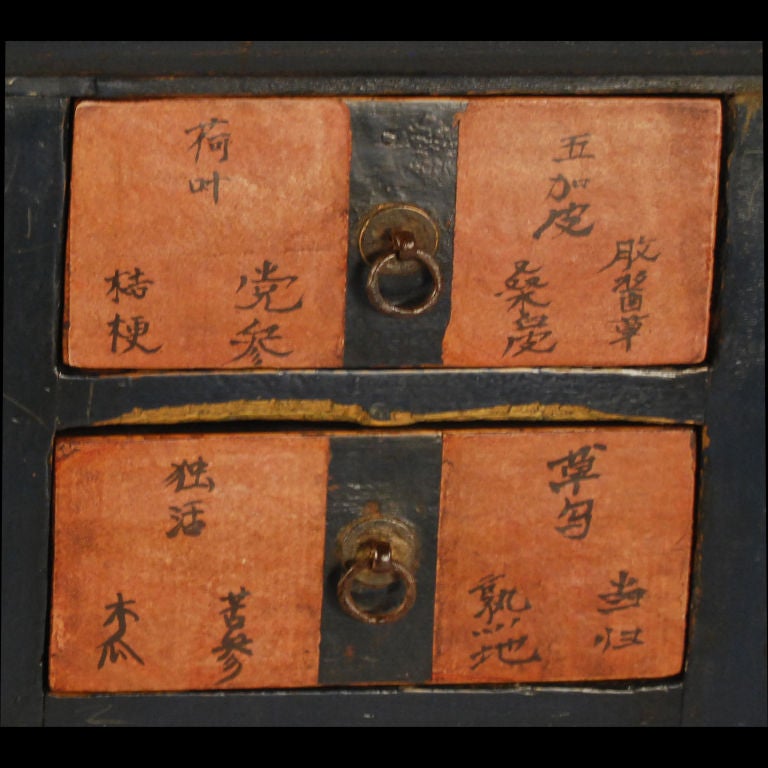 荷叶
桔梗
党参
五加皮
桑皮
独活
木瓜
苦参
草乌
熟地
当归